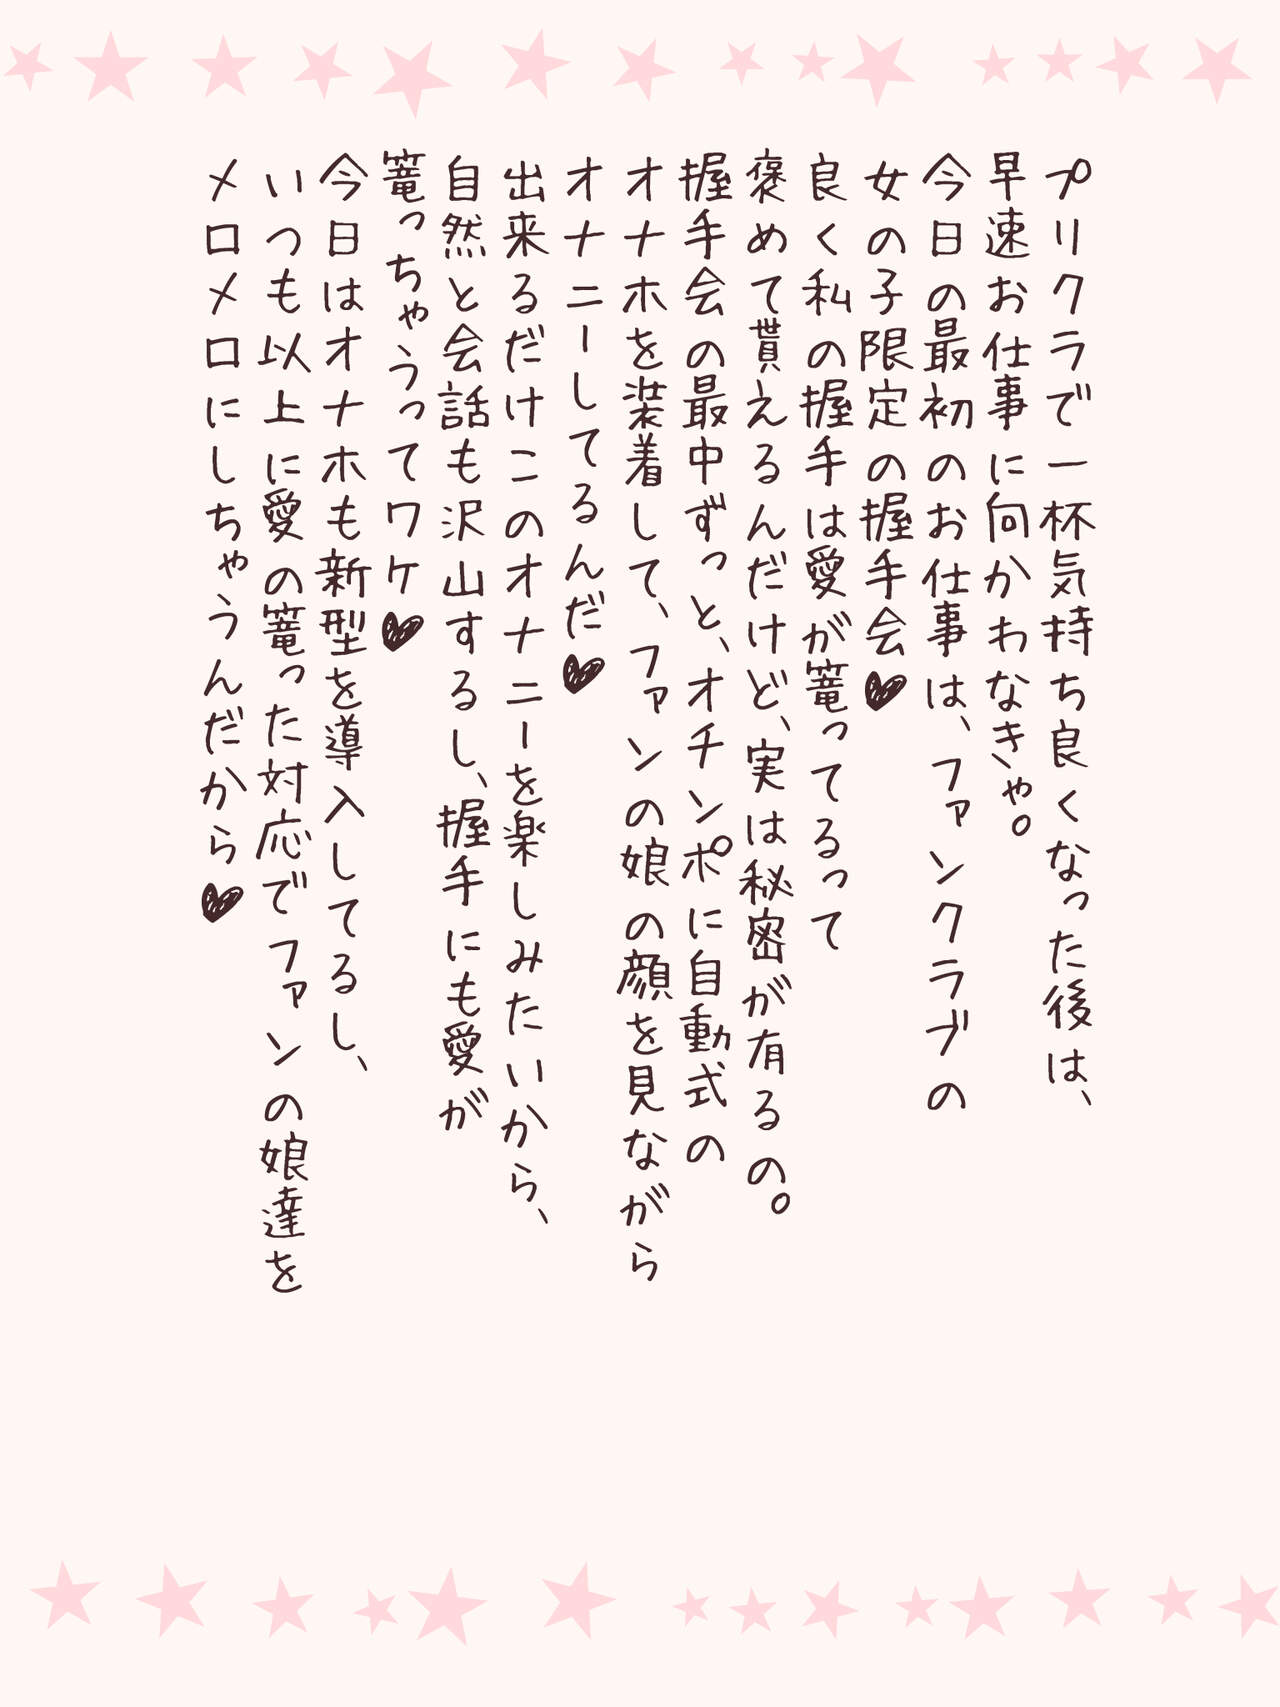 プリクラで一杯気持ち良くなった後は、
早速お仕事に向かわなきゃ。
今日の最初のお仕事は、ファンクラブの
女の子限定の握手会♥
良く私の握手は愛が篭ってるって
褒めて貰えるんだけど、実は秘密が有るの。
握手会の最中ずっと、オチンポに自動式の
オナホを装着して、ファンの娘の顔を見ながら
オナニーしてるんだ♥
出来るだけこのオナニーを楽しみたいから、
自然と会話も沢山するし、握手にも愛が
篭っちゃうってワケ♥
今日はオナホも新型を導入してるし、
いつも以上に愛の篭った対応でファンの娘達を
メロメロにしちゃうんだから♥